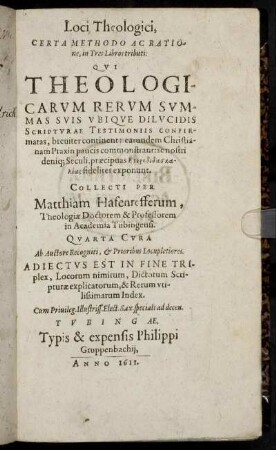 Loci Theologici,
CERTA METHODO AC RATIO-
ne, in Tres Libros tributi:
QVI
THEOLOGI-
CARVM RERVM SVM-
MAS SVIS VBIQVE DILVCIDIS
SCRIPTVRAE TESTIMONIIS CONFIR-
matas, breuiter continent: earundem Christia-
nam Praxin paucis commonstrant: & nostri
deniq; Seculi, præcipuas
fideliter exponunt.
COLLECTI PER
Matthiam Hafenrefferum,
Theologiæ Doctorem & Professorem
in Academia Tubingensi.
QVARTA CVRA
Ab Auctore Recogniti, & Prioribus Locupletiores.
ADIECTVS EST IN FINE TRI-
plex, Locorum nimirum, Dictorum Scri-
pturæ explicatorum, & Rerum vti-
lissimarum Index.
Cum Priuileg. Illustriss. Elect. Sax. speciali ad decen.
TVBINGAE.
Typis & expensis Philippi
Gruppenbachij,
ANNO 1611.